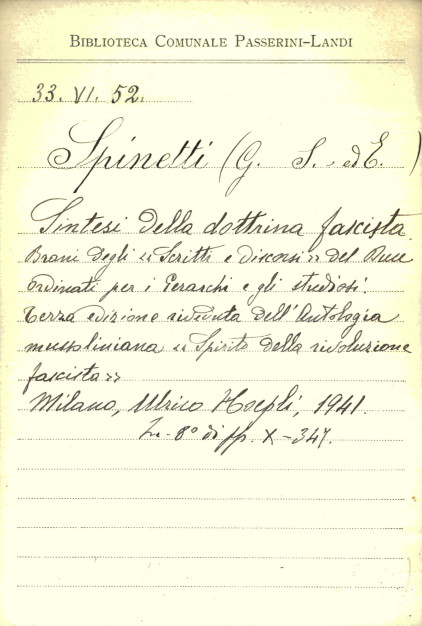 BIBLIOTECA COMUNALE PASSERINI-LANDI
33. VI. 52.
Spinetti (G. S. ed E.)
Sintesi della dottrina fascista.
Brani degli «Scritti e discorsi» del Duce
ordinati per i Gerarchi e gli studiosi.
Terza edizione riveduta dell'Antologia
mussoliniana «Spirito della rivoluzione
fascista»
Milano, Ulrico Hoepli, 1941.
In-8° di pp. X-347.